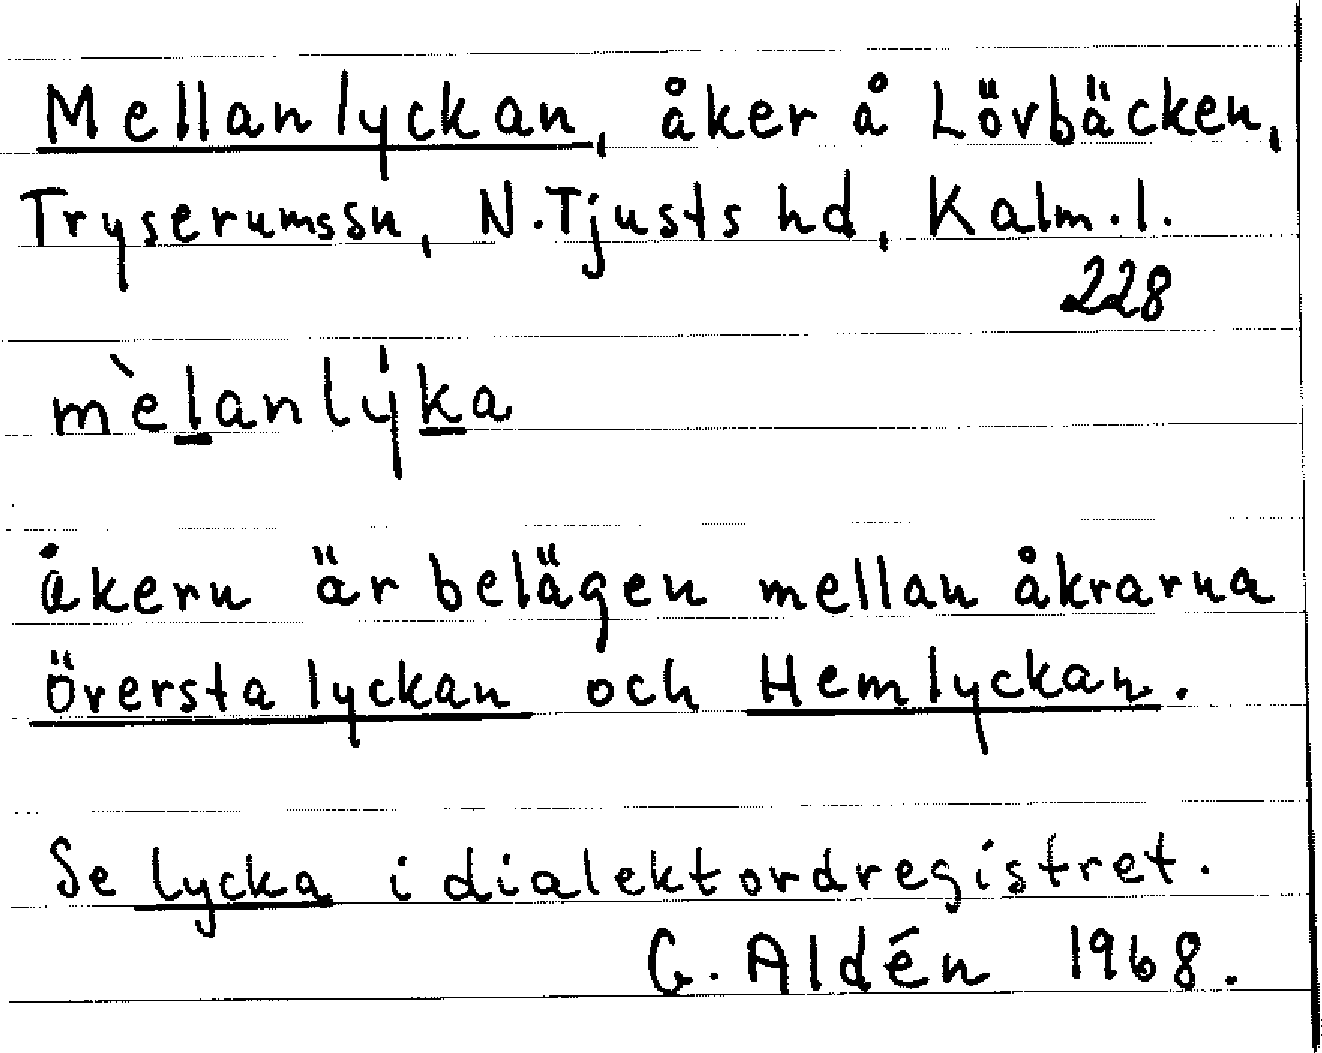 Mellanlyckan, åker å Lövbäcken,
Tryserumssn, N.Tjusts hd, Kalm.l.
228
m`elanlýka
Åkern är belägen mellan åkrarna
Översta lyckan och Hemlyckan.
Se lycka i dialektordregistret.
G. Aldén 1968.